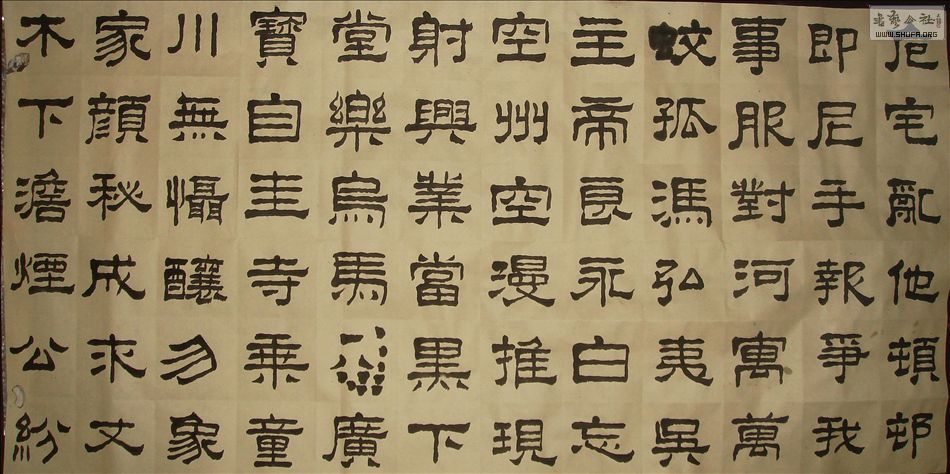 宅亂他頓邨
即尼手報爭我
事服對河寓萬
蛟孤馮弘夷吳
主帝良永白忘
空州空漫推現
射興業當黑下
堂樂烏馬廣
寶自圭寺乘童
川無懾釀勿象
家顏秘成求丈
木下澹煙公紛
書藝公社
WWW.SHUFA.ORG